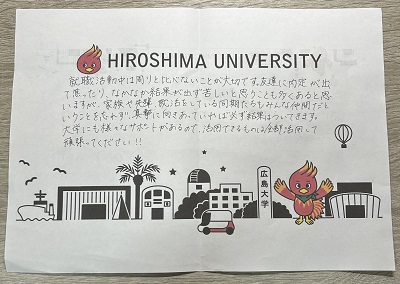 HIROSHIMA UNIVERSITY
就職活動中は周りと比べないことが大切です。友達に内定が出
て焦ったり、なかなか結果が出ず苦しいと思うことも多くあると思
いますが、家族や先輩、就活をしている同期たちもみんな仲間だと
いうことを忘れず、真摯に向きあっていれば必ず結果はついてきます。
大学にも様々なサポートがあるので、活用できるものは全部活用して
頑張ってください!!
広島大学